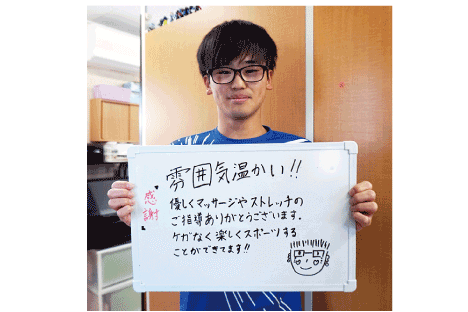 雰囲気温かい!!
感謝
優しくマッサージや ストレッチの
ご指導ありがとうございます。
ケガなく楽しくスポーツする
ことができてます!!